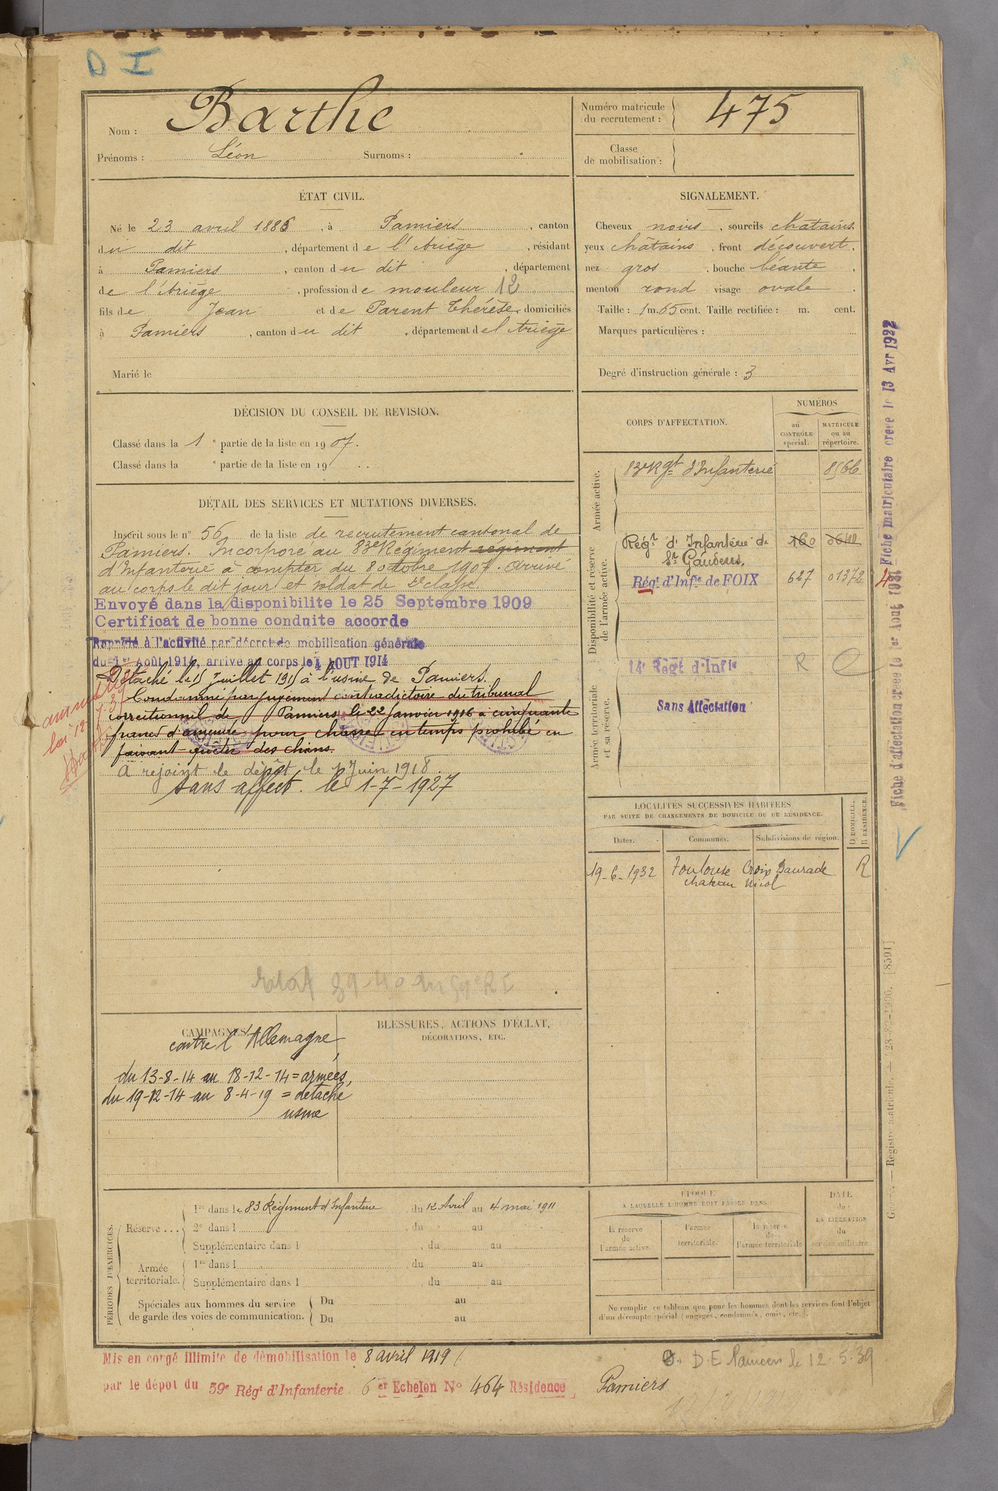 D I
Nom : Barthe
Prénoms : Léon Surnoms :
Numéro matricule du recrutement : 475
Classe de mobilisation :
ÉTAT CIVIL.
Né le 23 avril 1886, à Pamiers, canton
du dit, département de l'Ariège, résidant
à Pamiers, canton du dit, département
de l'Ariège, profession de mouleur 12
fils de Jean et de Parent Thérèse, domiciliés
à Pamiers, canton du dit, département de l'Ariège
Marié le
SIGNALEMENT.
Cheveux noirs, sourcils châtains.
yeux châtains, front découvert.
nez gros, bouche béante.
menton rond visage ovale.
Taille : 1 m. 65 cent. Taille rectifiée : m. cent.
Marques particulières :
Degré d'instruction générale : 3
DÉCISION DU CONSEIL DE REVISION.
Classé dans la 1e partie de la liste en 1907.
Classé dans la e partie de la liste en 19
DÉTAIL DES SERVICES ET MUTATIONS DIVERSES.
Inscrit sous le n° 56 de la liste de recrutement cantonal de
Pamiers. Incorporé au 83e Régiment régiment
d'Infanterie à compter du 8 octobre 1907. Arrivé
au corps le dit jour et soldat de 2e classe.
Envoyé dans la disponibilite le 25 Septembre 1909
Certificat de bonne conduite accorde
Rappelé à l'activité par décret de mobilisation générale
du 1er Août 1914, arrivé au corps le 4 AOUT 1914
Détaché le Juillet 1915 à l'usine de Pamiers.
Condamné par jugement contradictoire du tribunal
correctionnel de Pamiers le 22 Janvier 1916 à cinquante
francs d'amende pour chasse en temps prohibé en
faisant quêter des chiens.
A rejoint le dépôt le 1 Juin 1918
sans affect. le 1-7-1927
CORPS D'AFFECTATION.
NUMÉROS
au CONTRÔLE spécial.
MATRICULE ou au répertoire.
Armée active.
83e Rgt d'Infanterie 8566
Disponibilité et réserve de l'armée active.
Régt d'Infanterie de St Gaudens. 160
Régt d'Infie de FOIX 627 01372
Armée territoriale et sa réserve.
14e Régt d'Infie R
Sans Affectation
Fiche d'affectation créée le 1er Août 1931 Fiche matriculaire créée le 13 Avr 1932
LOCALITÉS SUCCESSIVES HABITÉES
PAR SUITE DE CHANGEMENTS DE DOMICILE OU DE RÉSIDENCE.
Dates. Communes. Subdivisions de région. D. DOMICILE. R. RÉSIDENCE.
19-6-1932 Toulouse Croix Daurade R
chateau Nicol
CAMPAGNES
contre l'Allemagne
du 13-8-14 au 18-12-14 = armées,
du 19-12-14 au 8-4-19 = détaché
usine
BLESSURES, ACTIONS D'ÉCLAT,
DÉCORATIONS, ETC.
PÉRIODES D'EXERCICES.
Réserve...
1re dans le 83 Régiment d'Infanterie du 12 Avril au 4 mai 1911
2e dans l du au
Supplémentaire dans l du au
Armée territoriale.
1re dans l du au
Supplémentaire dans l du au
Spéciales aux hommes du service de garde des voies de communication.
Du au
Du au
ÉPOQUE
À LAQUELLE L'HOMME DOIT PASSER DANS
la réserve de l'armée active.
l'armée territoriale.
la réserve de l'armée territoriale
DATE de LA LIBÉRATION du service militaire.
Ne remplir ce tableau que pour les hommes dont les services font l'objet
d'un décompte spécial (engagés, condamnés, omis, etc.)
Mis en congé illimité de démobilisation le 8 avril 1919
par le dépot du 59e Régt d'Infanterie 6e Echelon No 464 Résidence Pamiers
D.E. Pamiers le 12.5.39